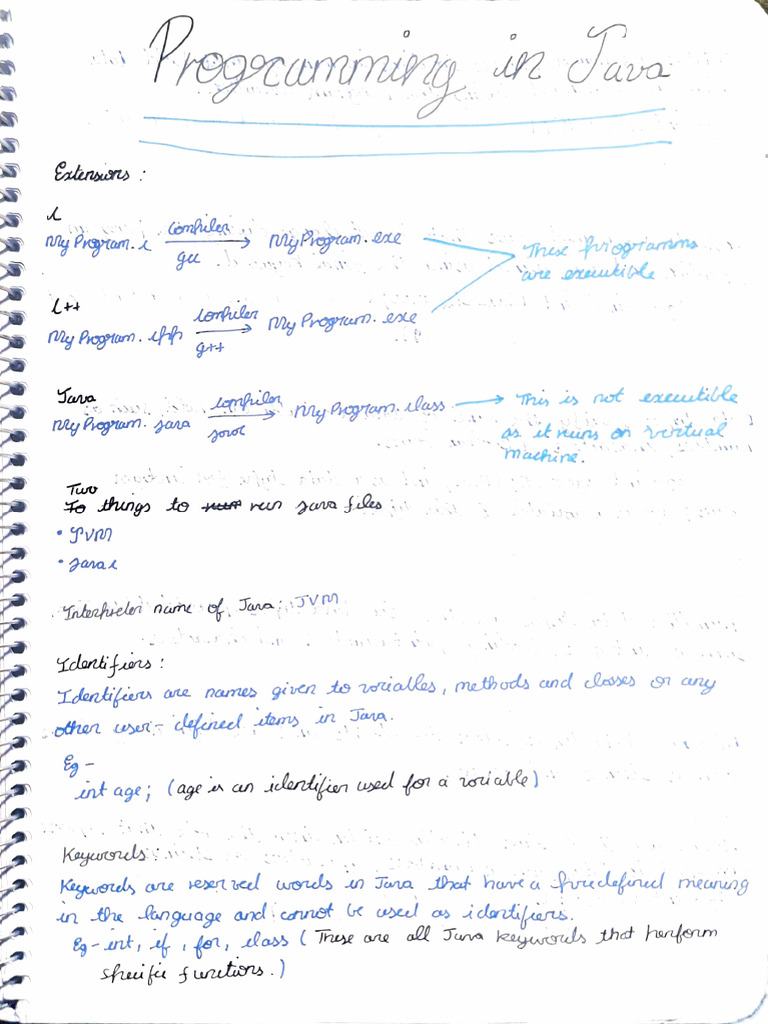 Programming in Java
Extensions :
C
MyProgram.c compiler gcc MyProgram.exe
These programms
are executible
C++
MyProgram.cpp compiler g++ MyProgram.exe
Java
MyProgram.java compiler MyProgram.class
This is not executible
as it runs on virtual
machine.
Two
To things to run run java files
• JVM
• javac
Interpreter name of Java: JVM
Identifiers :
Identifiers are names given to variables, methods and classes or any
other user-defined items in Java.
Eg -
int age; (age is an identifier used for a variable)
Keywords :
Keywords are reserved words in Java that have a predefined meaning
in the language and cannot be used as identifiers.
Eg - int, if, for, class (These are all Java keywords that perform
specific functions.)